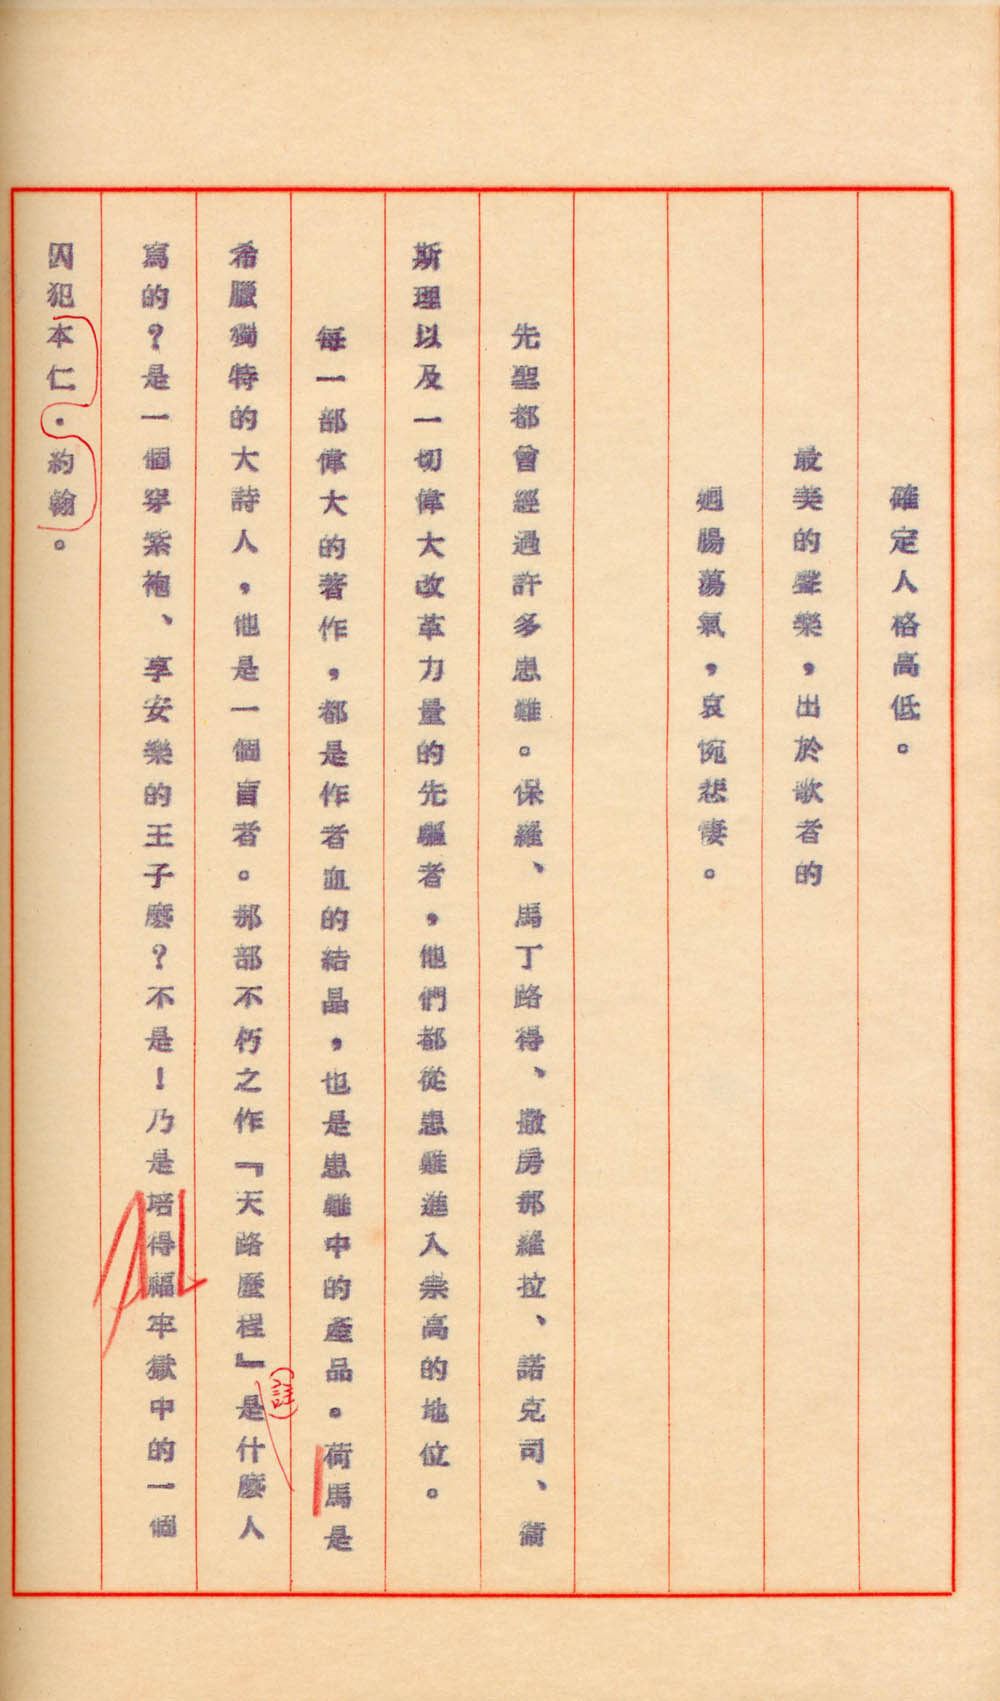 確定人格高低。
最美的聲樂，出於歌者的
迴腸蕩氣，哀惋悲悽。
先聖都曾經過許多患難。保羅、馬丁路得、撒房那羅拉、諾克司、衞
斯理以及一切偉大改革力量的先驅者，他們都從患難進入崇高的地位。
每一部偉大的著作，都是作者血的結晶，也是患難中的產品。荷馬是
希臘獨特的大詩人，他是一個盲者。那部不朽之作『天路歷程』是什麼人
(註)
寫的？是一個穿紫袍、享安樂的王子麼？不是！乃是培得福牢獄中的一個
囚犯本仁·約翰。